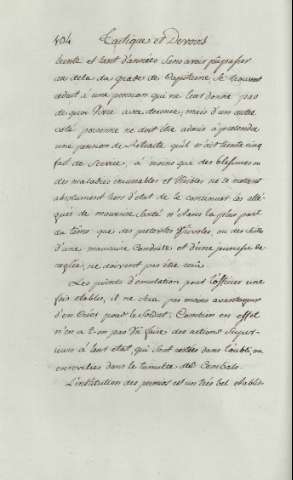 104 Tactique et Devoirs
trente et tant d'années sans avoir pu passer
au dela du grade de Capitaine se trouvent
réduit a une pension qui ne leur donne pas
de quoi vivre avec decence, mais d'un autre
coté personne ne doit être admis a pretendre
une pension de retraite qu'il n'ait trente cinq
fait de service, à moins que des blessures ou
des maladies incurables et visibles ne le mettent
absolument hors d'etat de le continuer les allé-
gués de mauvaise Santé n'étant la plus part
du tems que des pretextes frivoles ou des suites
d'une mauvaise Conduite et d'une jeunesse de-
reglée, ne doivent pas être
Les points d'emulation pour l'officier une
fois etablis, il ne sera pas moins avantageux
d'en Créer pour le Soldat. Combien en effet
n'en a t-on pas Vu faire des actions Super-
ieures à leur etat, qui Sont restées dans l'oubli, ou
ensevelies dans le tumulte des Combats.
L'institution des primes est un très bel etablis-